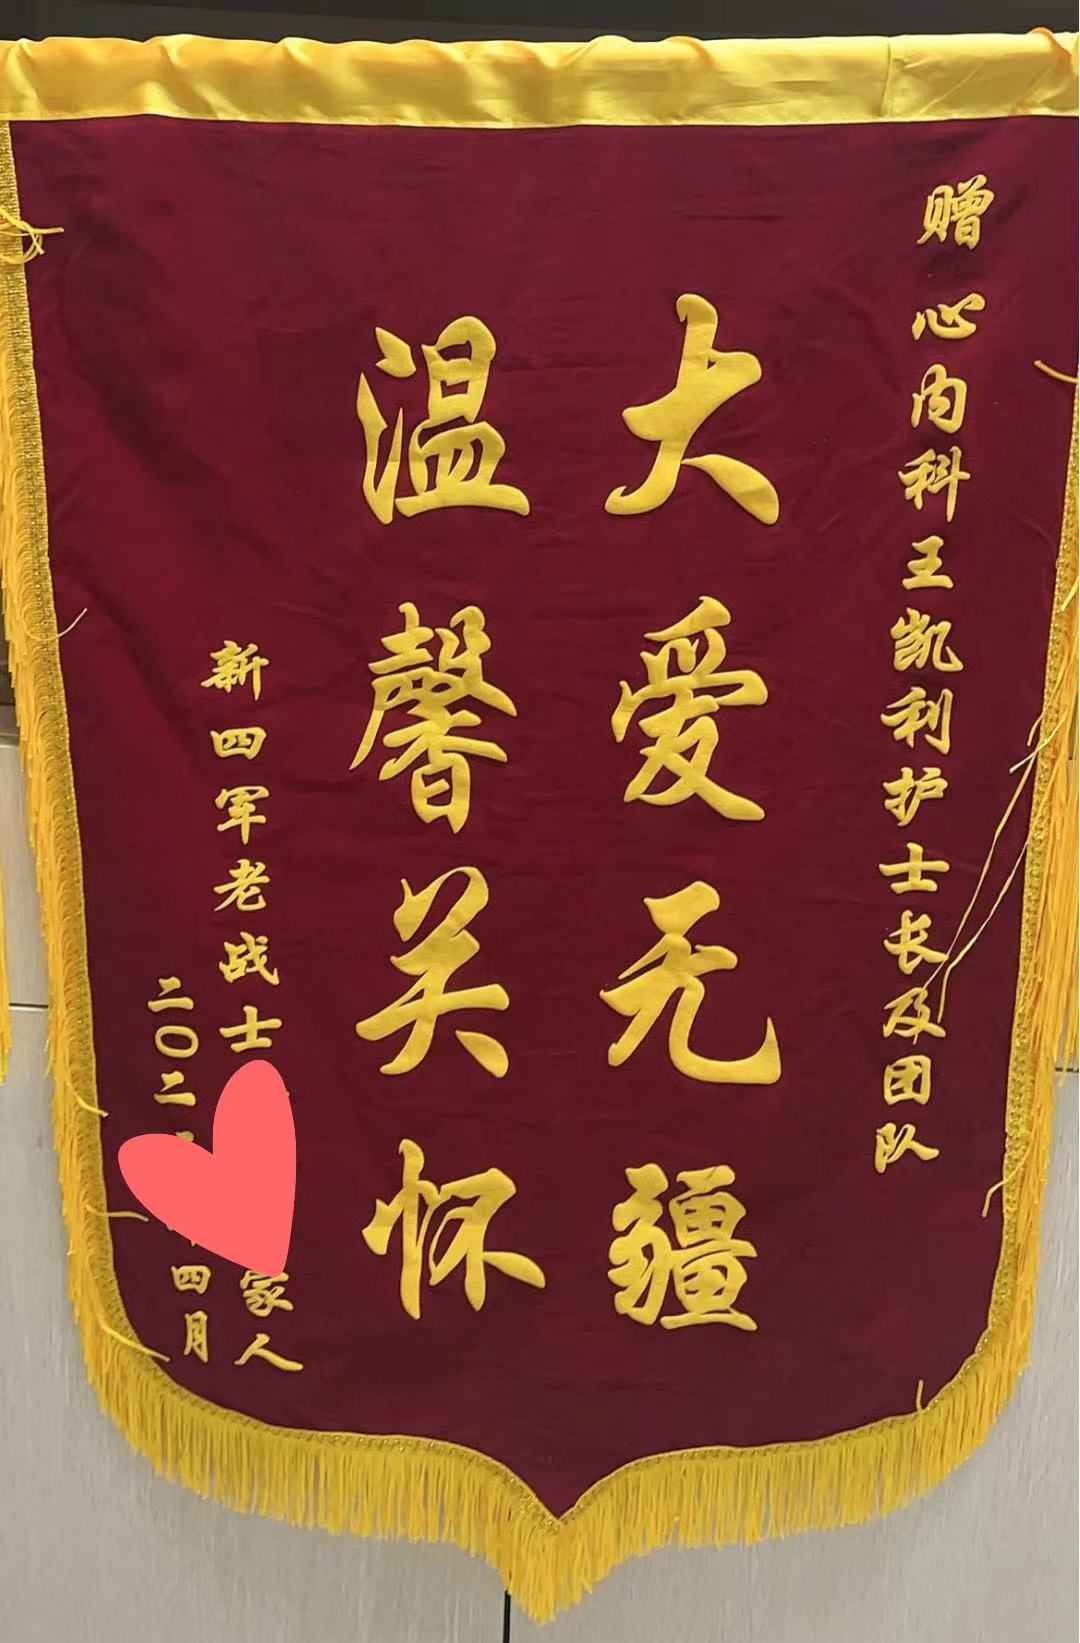 赠 心内科王凯利护士长及团队
大爱无疆
温馨关怀
新四军老战士
家人
二〇二
四月